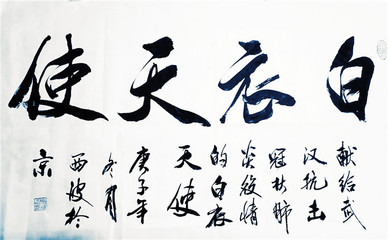 白衣天使
献给武
汉抗击
冠状肺
炎疫情
的白衣
天使
庚子年
冬月
西坡於
京